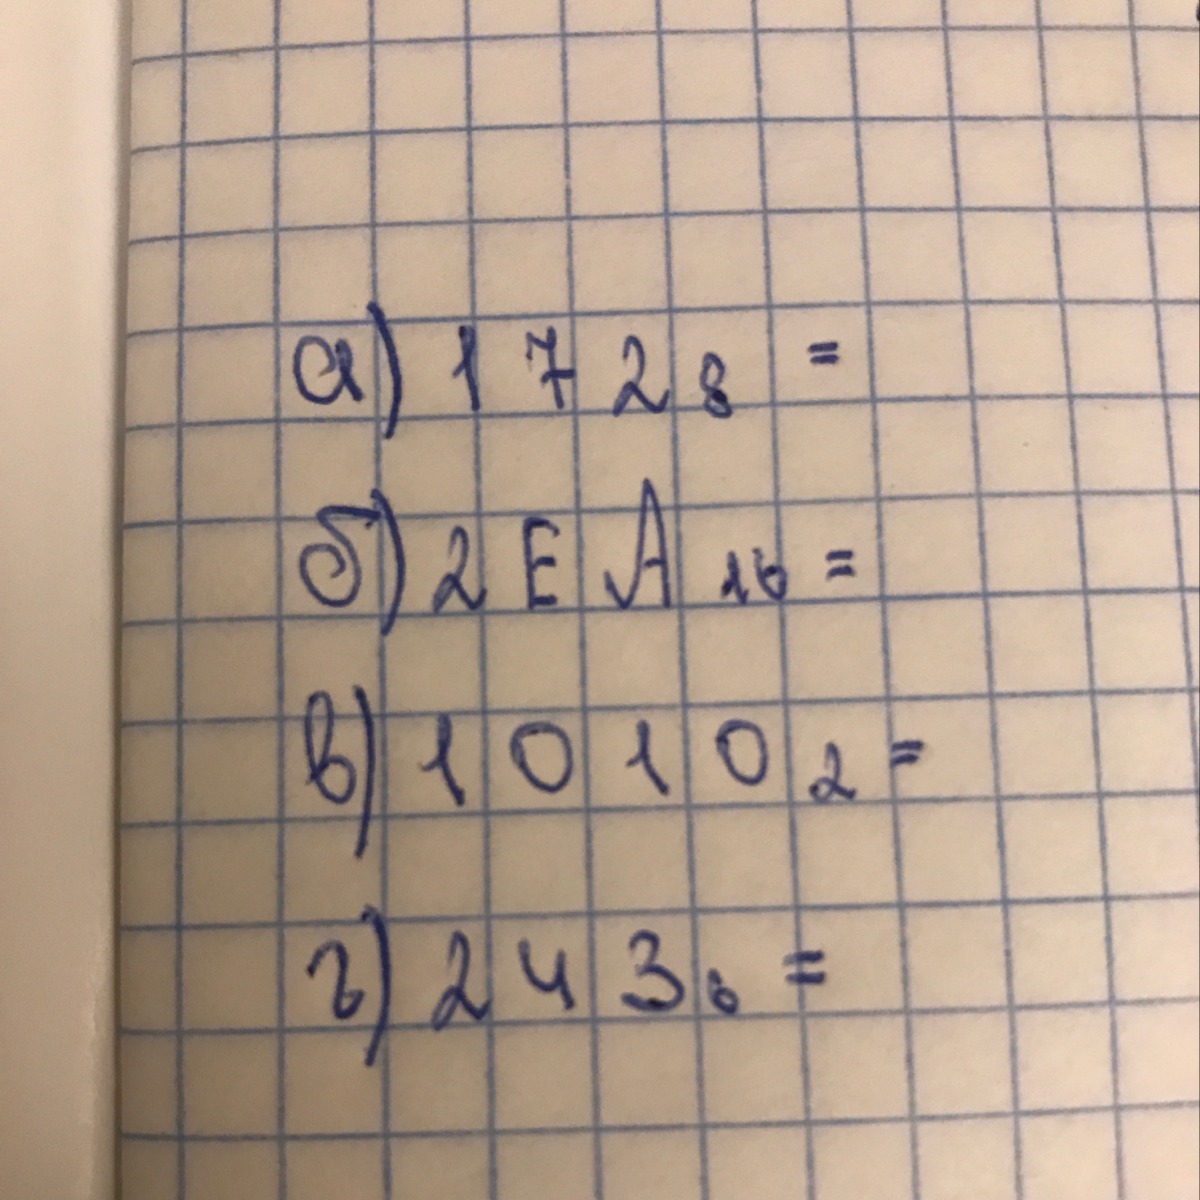 а) 172₈ =
б) 2EA₁₆ =
в) 1010₂ =
г) 243₆ =